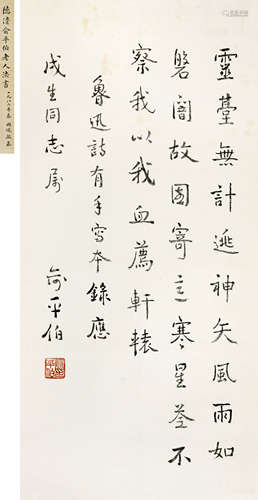 靈臺無計逃神矢風雨如
磐闇故園寄意寒星荃不
察我以我血薦軒轅
魯迅詩有手寫本錄應
生同志属
俞平伯
德清俞平伯老人法書